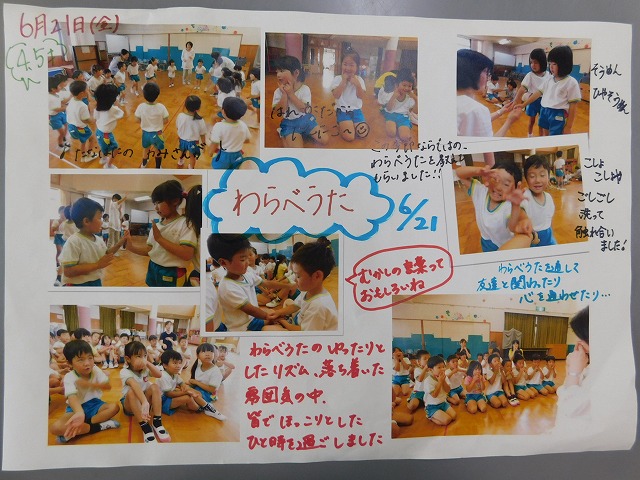 6月21日(金)
4.5才
わらべうた
6/21
わらべうたを教えて
もらいました!!
そうめん
ひやそうめん
こしょ
こしょや
ごしごし
洗って
触れ合い
ました!
むかしの言葉って
おもしろいね
わらべうたを通して
友達と関わったり
心を通わせたり…
わらべうたのゆったりと
したリズム、落ち着いた
雰囲気の中、
皆でほっこりとした
ひと時を過ごしました